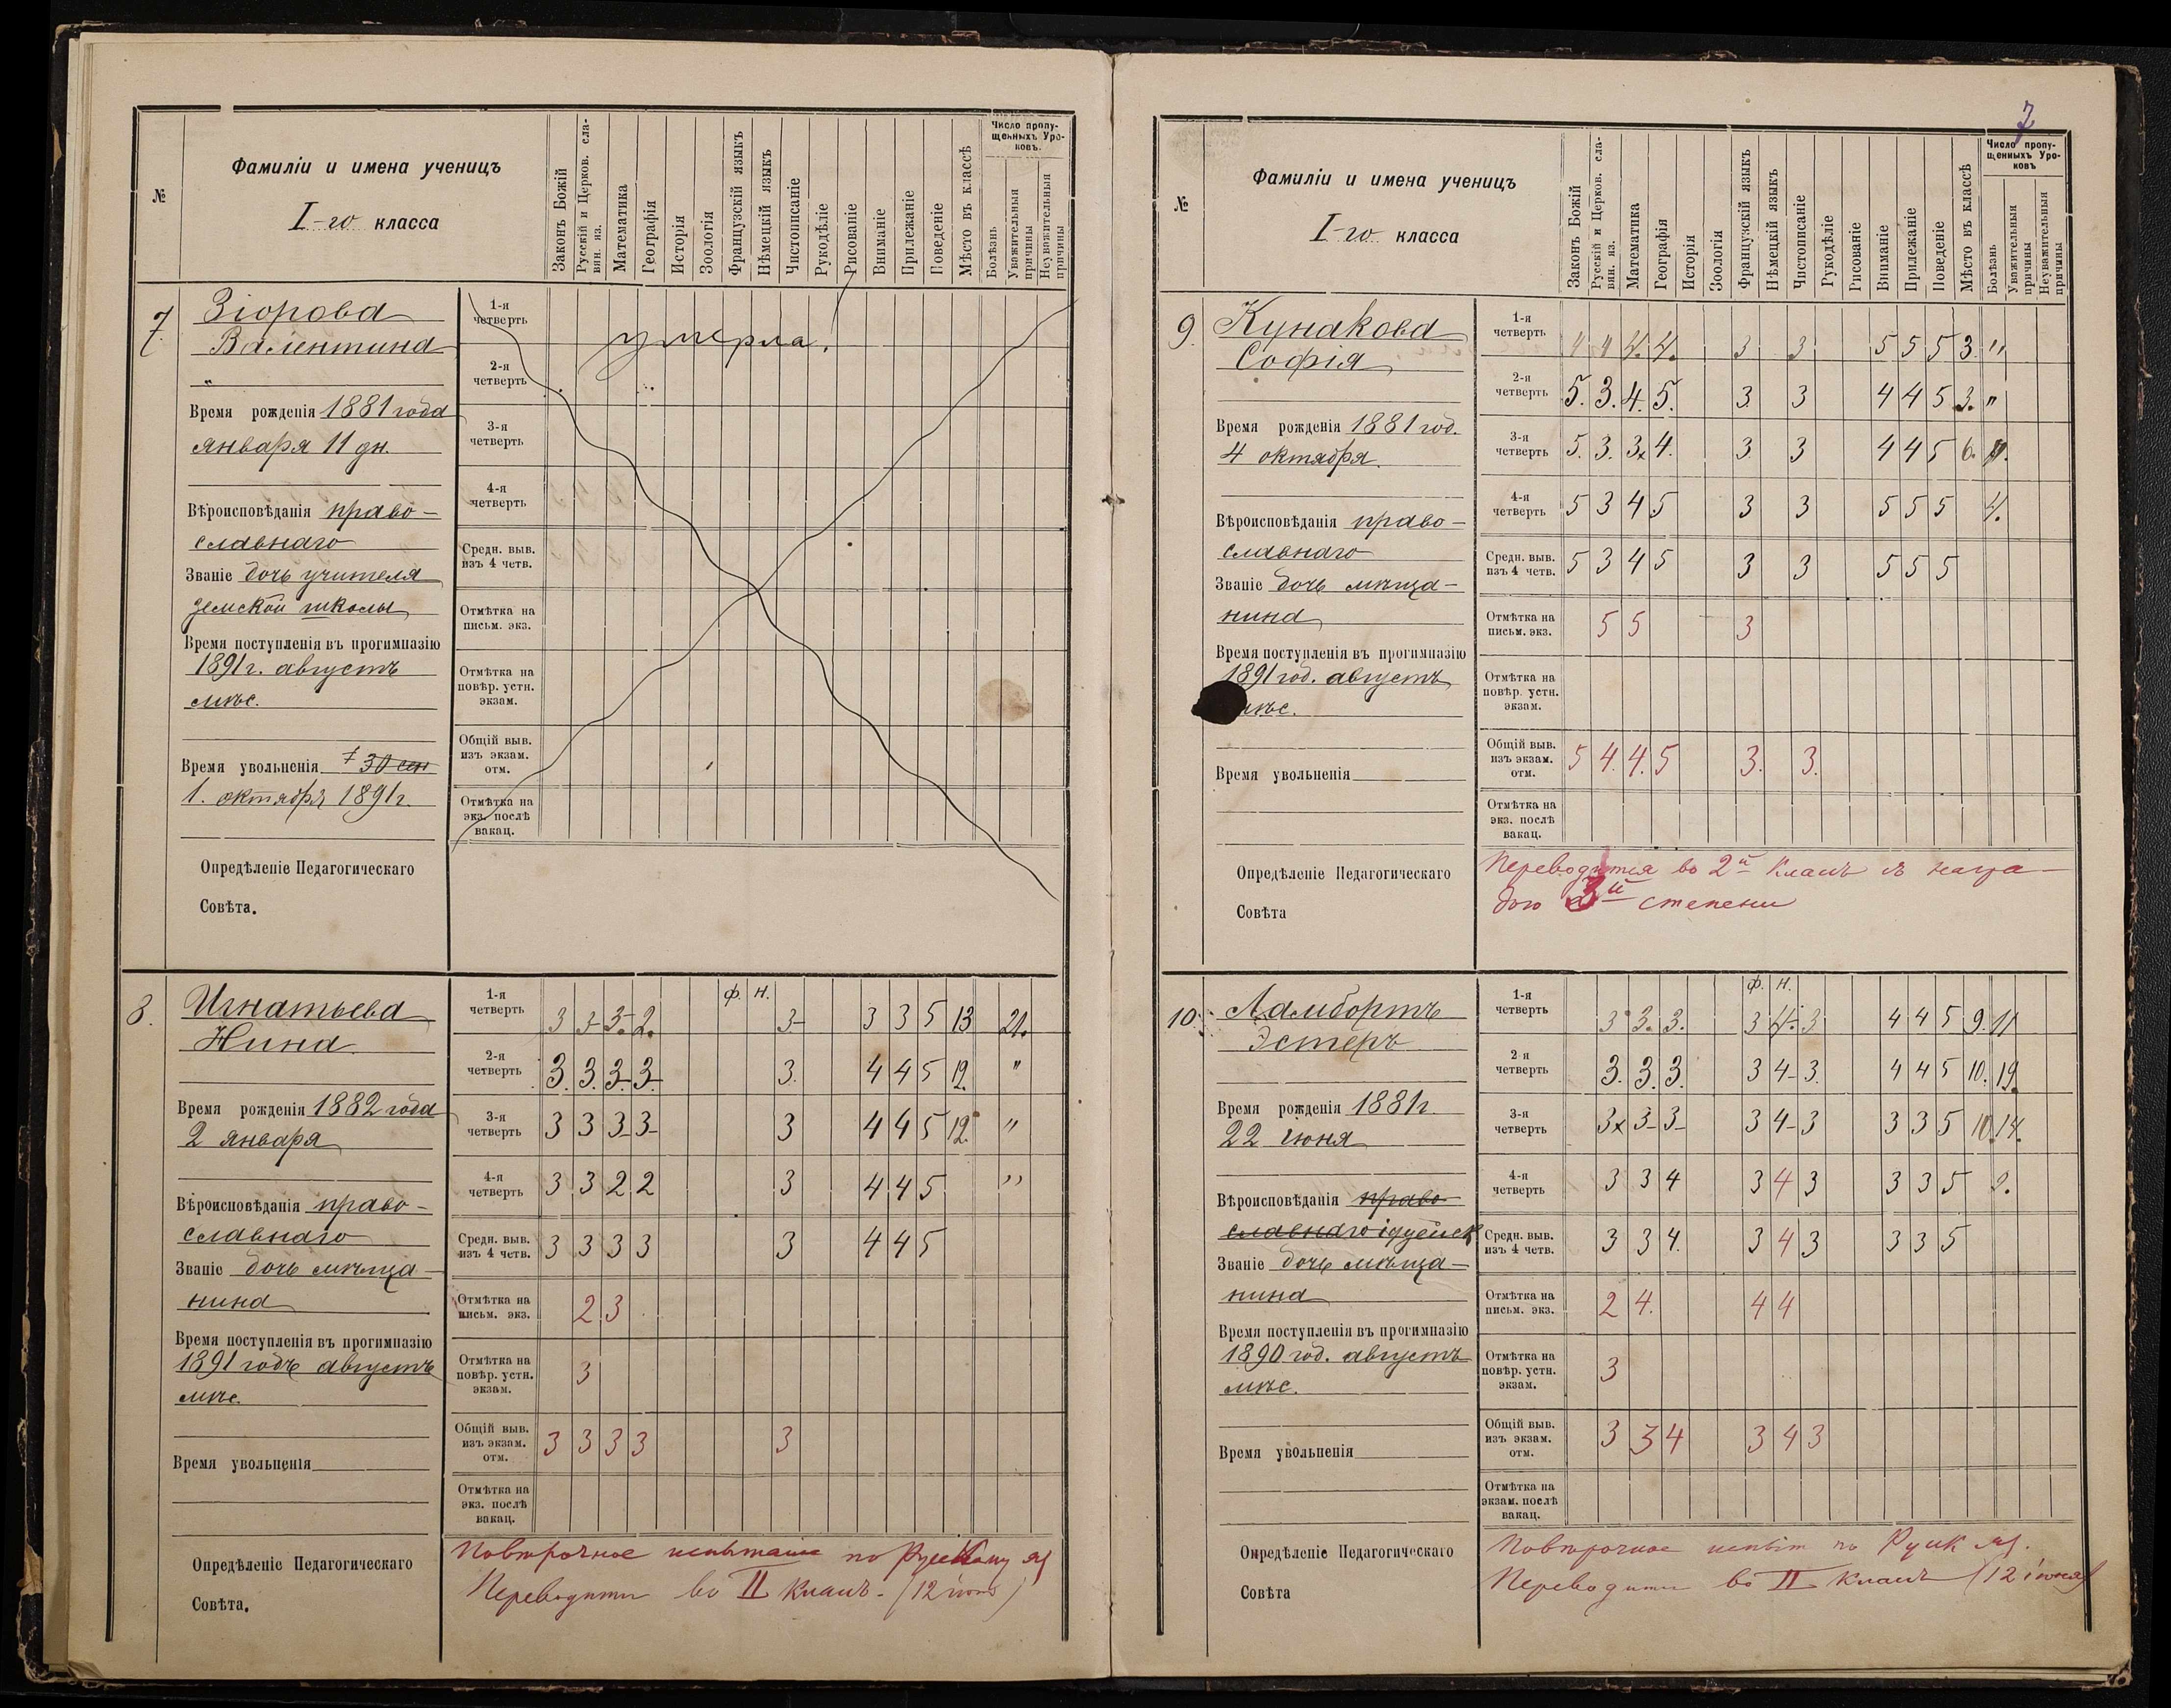 №
Фамиліи и имена ученицъ
I-го класса
Законъ Божій
Русскій и Церков. сла-
вян. яз.
Математика
Географія
Исторія
Зоологія
Французскій языкъ
Нѣмецкій языкъ
Чистописаніе
Рукодѣліе
Рисованіе
Вниманіе
Прилежаніе
Поведеніе
Мѣсто въ классѣ
Число пропу-
щенныхъ Уро-
ковъ.
Болѣзнь
Уважительныя
причины
Неуважительныя
причины
7.
Зіорова
Валентина
"
Время рожденія 1881 года
января 11 дн.
Вѣроисповѣданія право-
славнаго
Званіе дочь учителя
земской школы
Время поступленія въ прогимназію
1891 г. августъ
мѣс.
Время увольненія 30 сен
1. октября 1891 г.
1-я
четверть
умерла!
2-я
четверть
3-я
четверть
4-я
четверть
Средн. выв.
изъ 4 четв.
Отмѣтка на
письм. экз.
Отмѣтка на
повѣр. устн.
экзам.
Общій выв.
изъ экзам.
отм.
Отмѣтка на
экз. послѣ
вакац.
Опредѣленіе Педагогическаго
Совѣта.
8.
Игнатьева
Нина
Время рожденія 1882 года
2 января
Вѣроисповѣданія право-
славнаго
Званіе дочь мѣща-
нина
Время поступленія въ прогимназію
1891 годъ августъ
мѣс.
Время увольненія
ф. н.
1-я
четверть 3 3- 3- 2. 3- 3 3 5 13 21.
2-я
четверть 3. 3. 3- 3- 3. 4 4 5 12. "
3-я
четверть 3 3 3- 3- 3 4 4 5 12. "
4-я
четверть 3 3 2 2 3 4 4 5 "
Средн. выв.
изъ 4 четв. 3 3 3 3 3 4 4 5
Отмѣтка на
письм. экз. 2 3
Отмѣтка на
повѣр. устн.
экзам. 3
Общій выв.
изъ экзам.
отм. 3 3 3 3 3
Отмѣтка на
экз. послѣ
вакац.
Опредѣленіе Педагогическаго
Совѣта.
Повторочное испытаніе по Русскому яз
Переводити во II классъ. (12 іюня)
7
№
Фамиліи и имена ученицъ
I-го класса
Законъ Божій
Русскій и Церков. сла-
вян. яз.
Математика
Географія
Исторія
Зоологія
Французскій языкъ
Нѣмецкій языкъ
Чистописаніе
Рукодѣліе
Рисованіе
Вниманіе
Прилежаніе
Поведеніе
Мѣсто въ классѣ
Число пропу-
щенныхъ Уро-
ковъ
Болѣзнь
Уважительныя
причины
Неуважительныя
причины
9.
Кунакова
Софія
Время рожденія 1881 год.
4 октября.
Вѣроисповѣданія право-
славнаго
Званіе дочь мѣща-
нина
Время поступленія въ прогимназію
1891 год. августъ
мѣс.
Время увольненія
1-я
четверть 4 4 4. 4. 3 3 5 5 5 3. "
2-я
четверть 5. 3. 4. 5. 3. 3 4 4 5 3. "
3-я
четверть 5. 3. 3x 4. 3. 3 4 4 5 6.
4-я
четверть 5 3 4 5 3 3 5 5 5 4.
Средн. выв.
изъ 4 четв. 5 3 4 5 3 3 5 5 5
Отмѣтка на
письм. экз. 5 5 3
Отмѣтка на
повѣр. устн.
экзам.
Общій выв.
изъ экзам.
отм. 5 4. 4. 5 3. 3.
Отмѣтка на
экз. послѣ
вакац.
Опредѣленіе Педагогическаго
Совѣта
Переводится во 2й классъ съ награ-
дою 3й степени
10.
Ламбортъ
Эстеръ
Время рожденія 1881 г.
22 іюня
Вѣроисповѣданія право-
славнаго іудейск
Званіе дочь мѣща-
нина
Время поступленія въ прогимназію
1890 год. августъ
мѣс.
Время увольненія
ф. н.
1-я
четверть 3 3. 3. 3 4. 3 4 4 5 9. 11
2-я
четверть 3. 3. 3. 3 4- 3. 4 4 5 10. 19.
3-я
четверть 3x 3- 3- 3 4- 3 3 3 5 10 14.
4-я
четверть 3 3 4 3 4 3 3 3 5
Средн. выв.
изъ 4 четв. 3 3 4. 3 4 3 3 3 5
Отмѣтка на
письм. экз. 2 4. 4 4
Отмѣтка на
повѣр. устн.
экзам. 3
Общій выв.
изъ экзам.
отм. 3 3 4 3 4 3
Отмѣтка на
экзам. послѣ
вакац.
Опредѣленіе Педагогическаго
Совѣта
Повторочное испыт по Русск яз.
Переводити во II классъ (12 іюня)